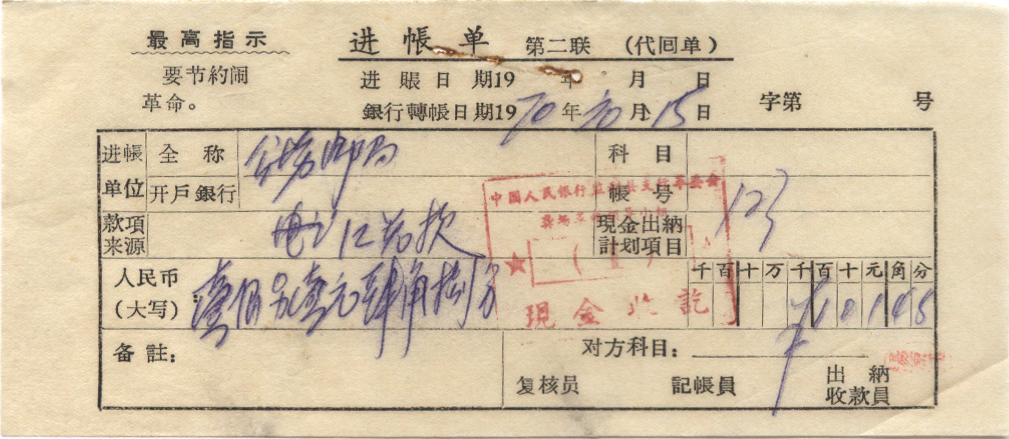 最高指示
要节約闹
革命。
进帳单 第二联 (代囘单)
进賬日期19 年 月 日
銀行轉帳日期1970年10月15日
字第 号
进帳单位 全称 邮局 科目
开戶銀行 帳号 123
款項来源 现金出納計划項目
人民币(大写) 壹佰另壹元肆角捌分
千百十万千百十元角分
¥10148
备註:
对方科目:
复核员 記帳員 出納收款員
中国人民銀行
現金收訖